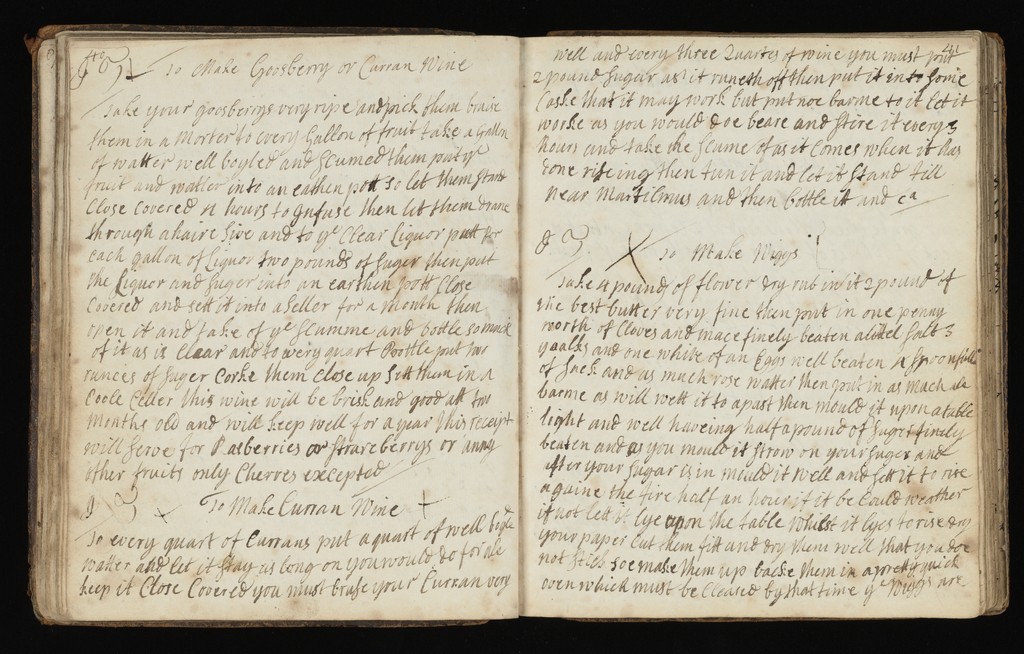 40
To Make Goosberry or Curran Wine
Take your goosberrys very ripe and pick them bruse
them in a Morter to every Gallon of fruit take a gallon
of watter well boyled and scumed them put ye
fruit and watter into an eathen pott so let them stand
Close Covered hours to Infuse then let them drane
through a haire sive and to ye Clear Liquor putt for
each gallon of Liquor two pounds of suger then put
the Liquor and suger into an earthen pott Close
Covered and sett it into a seller for a month then
open it and take of ye scumme and bottle so much
of it as is Clear and to every quart bottle put two
ounces of suger Corke them Close up sett them in a
Coole Celler this wine will be brisk and good att two
Months old and will keep well for a year this receipt
will serve for Rasberries or Strareberrys or anny
other fruits only Cherres excepted
To Make Curran Wine
To every quart of Currans put a quart of well boyle
watter and let it stay as long on you would do for ale
keep it Close Covered you must bruse your Curran very
41
well and every three Quartes of wine you must put
2 pound sugar as it runeth off then put it into some
Caske that it may work but put noe barme to it let it
worke as you would doe beare and stire it every 3
hours and take the scume of as it Comes when it has
done riseing then tun it and let it stand till
near Martilmus and then bottle it and ca
To Make Wiggs
Take 4 pound of flower dry rub in it 2 pound of
the best butter very fine then put in one penny
worth of Cloves and mace finely beaten a litel salt 3
yoalks and one white of an Eggs well beaten 4 sponfulls
of sack and as much rose watter then put in as much ale
barme as will wett it to a past then mould it upon a table
light and well haveing half a pound of suger finely
beaten and as you mould it strow on your suger and
after your sugar is in mould it well and sett it to rise
againe the fire half an hour if it be Could weather
if not lett it lye upon the table whilst it lyes to rise dry
your paper Cut them fitt and dry them well that you doe
not stick soe make them up backe them in a pretty quick
oven which must be Cleased by that time ye Wiggs are